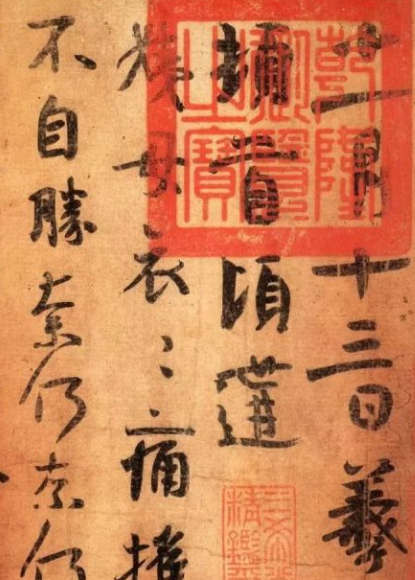 十一月十三日羲
頓首頃遘
姨母哀〻痛摧
不自勝奈何奈何
乾隆
御覽
之寶
三希堂
精鑑